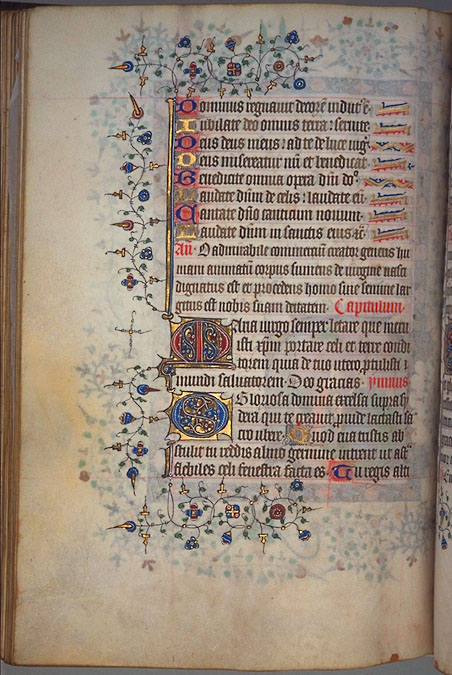 Dominus regnavit decorē indut' ē
Iubilate deo omnis terra: servite
Deus deus meus: ad te de luce vig
Deus misereatur nr̄i et benedicat
Benedicite omnia opera dn̄i dn̄o
Laudate dn̄m de celis: laudate eū
Cantate dn̄o canticum novum
Laudate dn̄m in sanctis eius
An̄. O admirabile commerciū creator generis hu
mani animatū corpus sumens de virgine nasci
dignatus est et procedens homo sine semine lar
gitus est nobis suam deitatem. Capitulum.
Maria virgo semper letare que meru
isti xp̄m portare celi et terre condi
torem quia de tuo utero protulisti
mundi salvatorem. Deo gracias. ymnus
O gloriosa domina excelsa supra sy
dera qui te creavit provide lactasti sa
cro ubere. Quod eva tristis ab
stulit tu reddis almo germine intrent ut ast'
flebiles celi fenestra facta es. Tu regis alti